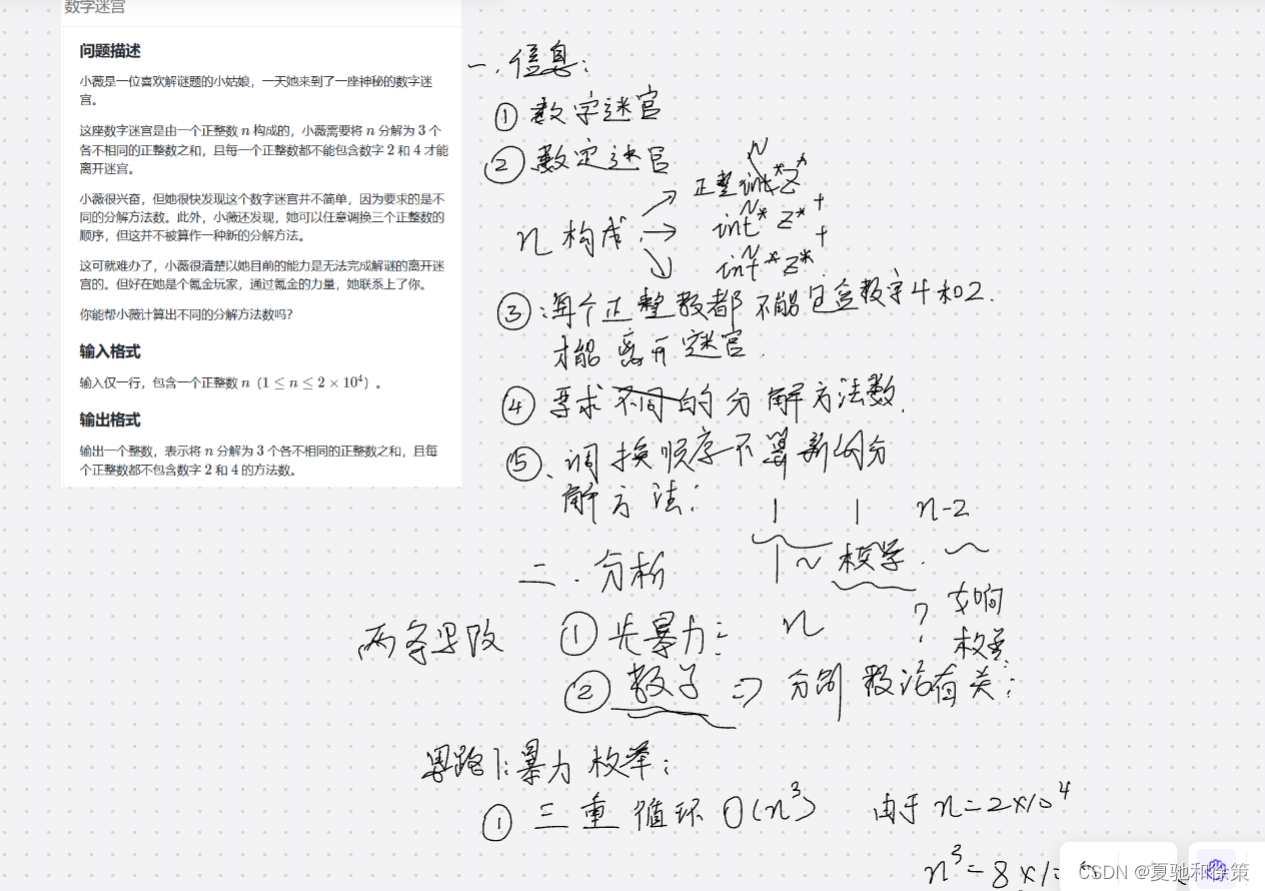 数字迷宫
问题描述
小薇是一位喜欢解谜题的小姑娘，一天她来到了一座神秘的数字迷
宫。
这座数字迷宫是由一个正整数 n 构成的，小薇需要将 n 分解为 3 个
各不相同的正整数之和，且每一个正整数都不能包含数字 2 和 4 才能
离开迷宫。
小薇很兴奋，但她很快发现这个数字迷宫并不简单，因为要求的是不
同的分解方法数。此外，小薇还发现，她可以任意调换三个正整数的
顺序，但这并不被算作一种新的分解方法。
这可就难办了，小薇很清楚以她目前的能力是无法完成解谜的离开迷
宫的。但好在她是个氪金玩家，通过氪金的力量，她联系上了你。
你能帮小薇计算出不同的分解方法数吗？
输入格式
输入仅一行，包含一个正整数 n（1 ≤ n ≤ 2 × 10⁴）。
输出格式
输出一个整数，表示将 n 分解为 3 个各不相同的正整数之和，且每
个正整数都不包含数字 2 和 4 的方法数。
一.信息：
① 数字迷宫
② 数字迷宫
n 构成
正整 int* Z*
int* Z*
int* Z*
③：每个正整数都不能包含数字4和2.
才能离开迷宫.
④ 要求不同的分解方法数.
⑤、调换顺序不算新的分
解方法：
1 1 n-2
二.分析
1 ~ 枚举.
n
?
如何
枚举
两条思路
① 先暴力：
② 数学 => 分别 有关：
思路1:暴力枚举：
① 三重循环 O(n³) 由于 n=2×10⁴
n³=8×10
CSDN @夏驰和徐策